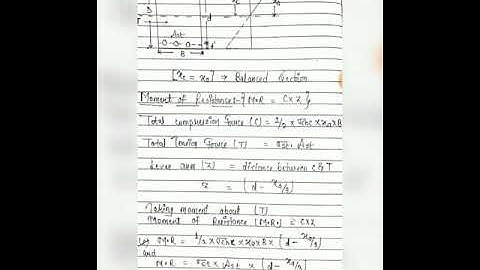 D
d
xc
xa
T
Ast
d'
B
[xc = xa] → Balanced Section
Moment of Resistance → { M·R = C×Z }
Total compression Force (C) = 1/2 × σcbc × xa × B
Total Tension Force (T) = σst · Ast
Lever arm (Z) = distance between C & T
z = (d - xa/3)
Taking moment about (T)
Moment of Resistance [M·R·] = C×Z
M·R = 1/2 × σcbc × xa × B × (d - xa/3)
and
M·R = σst × Ast × (d - xa/3)